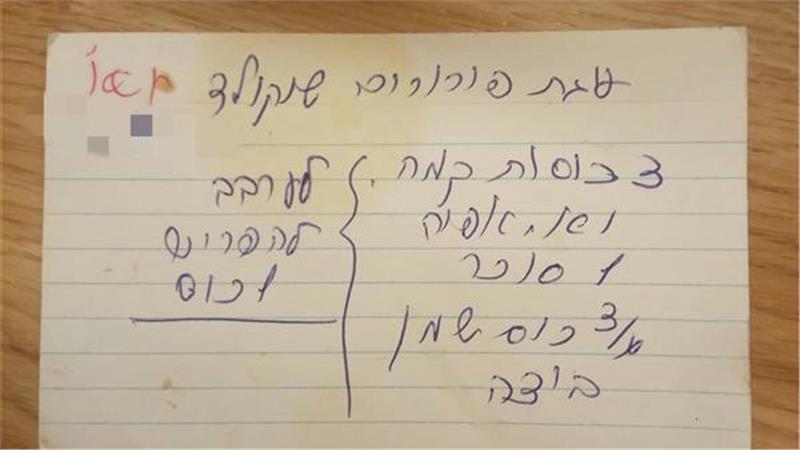 עוגת פירורים שוקולד
3 כוסות קמח
ואב. אפיה
1 סוכר
3/4 כוס שמן
ביצה
לערבב
להפריש
1 כוס